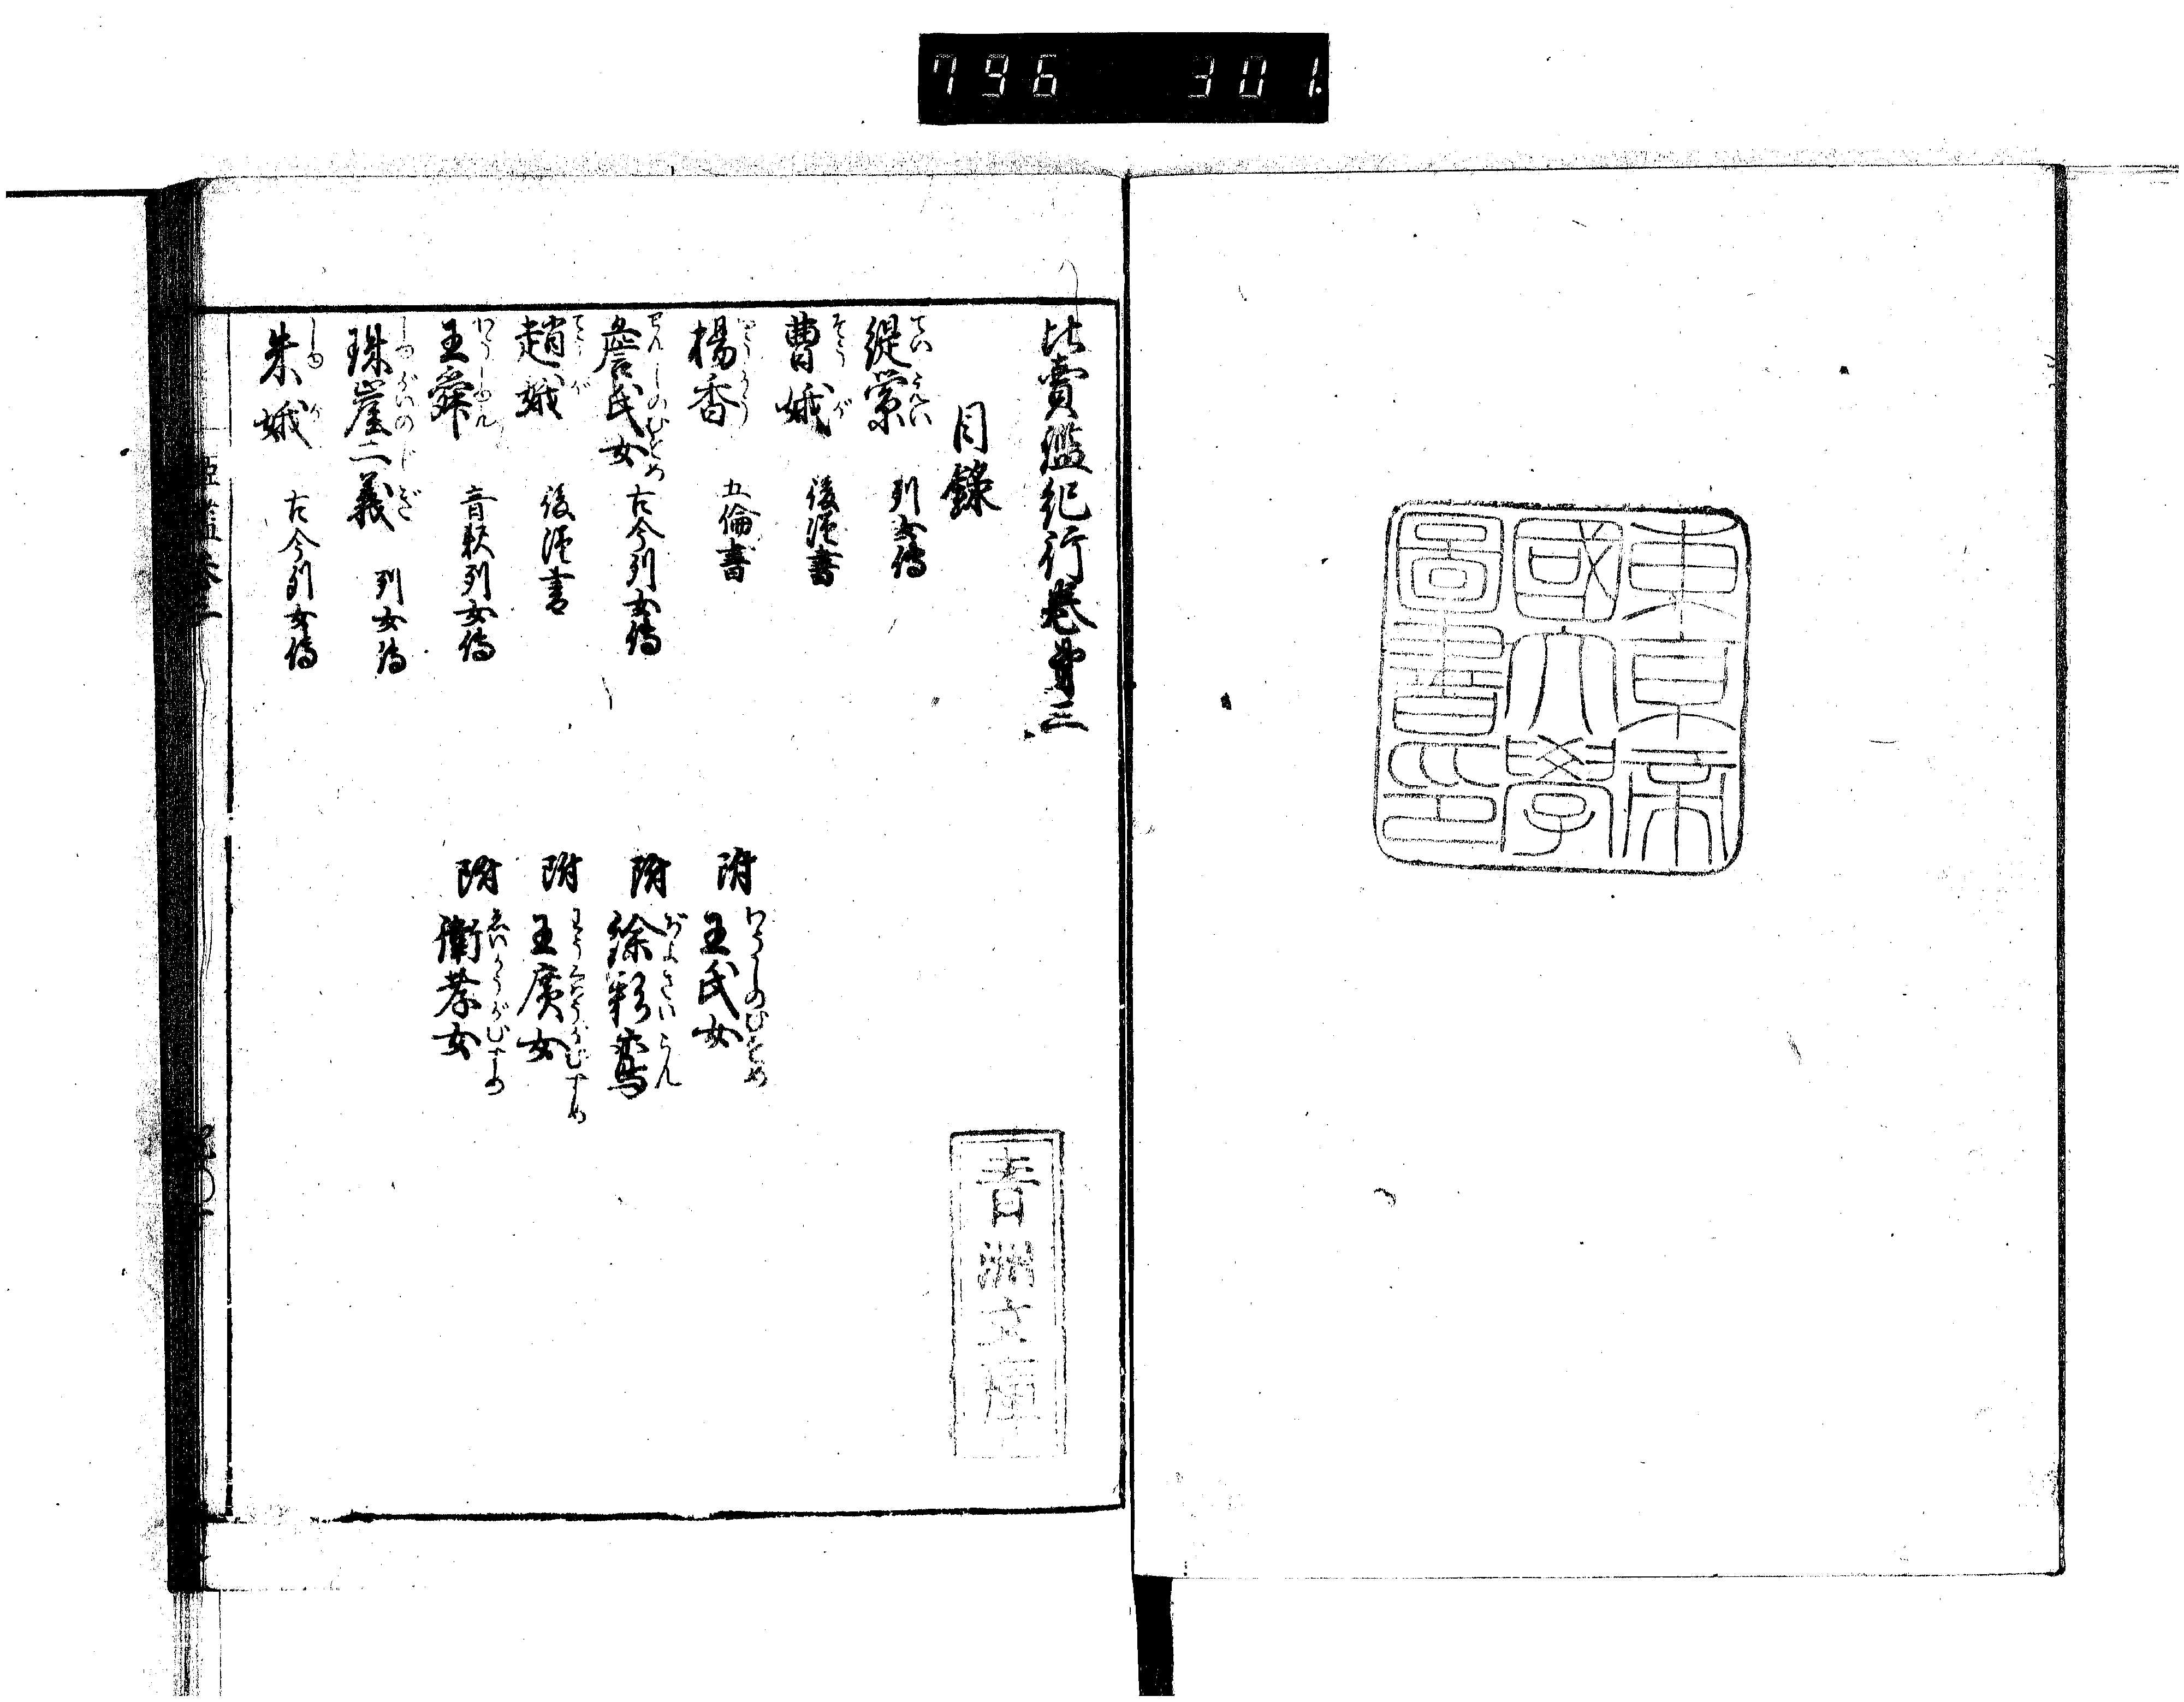 796 301
東京帝
國大學
圖書印
比賣鑑紀行卷第三
目錄
緹縈 列女傳
曹娥 後漢書
楊香 五倫書 附 王氏女
詹氏女 古今列女傳 附 徐彩鸞
趙娥 後漢書 附 王廣女
王舜 古今列女傳 附 衛孝女
珠崖二義 列女傳
朱娥 古今列女傳
青洲文庫